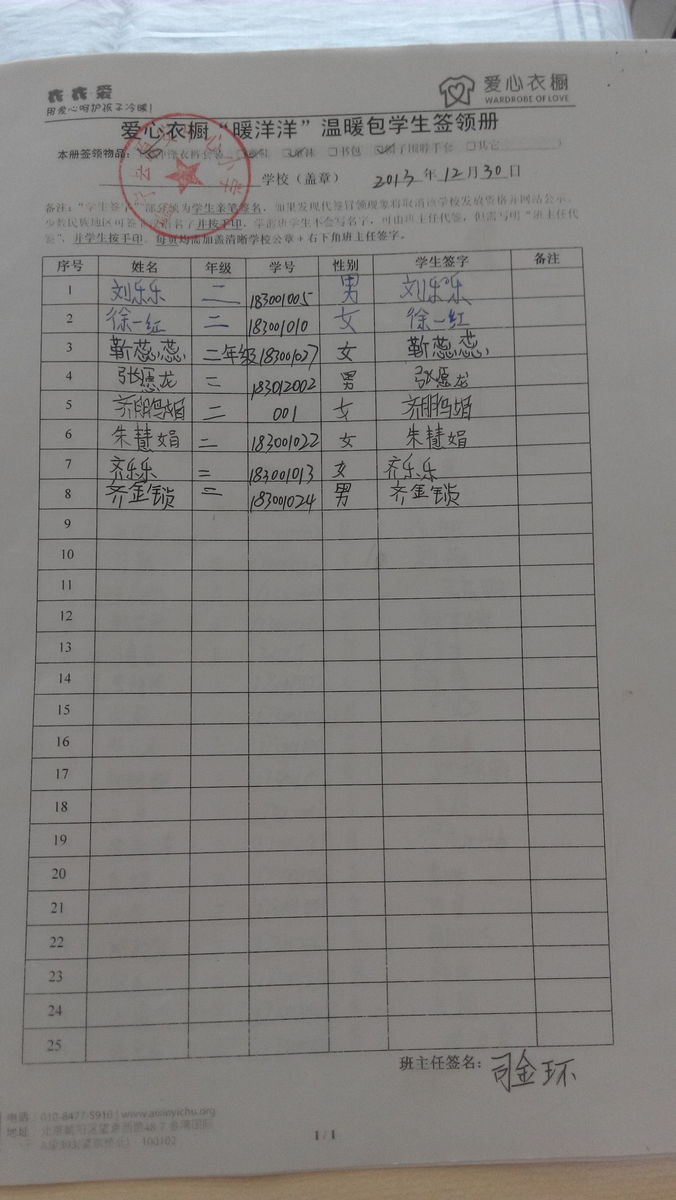 衣衣爱
用爱心呵护孩子冷暖!
爱心衣橱
WARDROBE OF LOVE
爱心衣橱“暖洋洋”温暖包学生签领册
本册签领物品: 书包 帽子围脖手套 其它
学校（盖章） 2013年12月30日
备注：“学生签字”部分须为学生亲笔签名，如果发现代签冒领现象将取消该学校发放资格并网站公示。
少数民族地区可签 名字并按手印，学前班学生不会写名字，可由班主任代签，但需写明“班主任代
签”，并学生按手印。每页均需加盖清晰学校公章+右下角班主任签字。
序号 姓名 年级 学号 性别 学生签字 备注
1 刘乐乐 二 183001005 男 刘乐乐
2 徐一红 二 183001010 女 徐一红
3 靳蕊蕊 二年级 183001027 女 靳蕊蕊
4 张愿龙 二 183012002 男 张愿龙
5 齐鹏娟 二 001 女 齐鹏娟
6 朱慧娟 二 183001022 女 朱慧娟
7 齐乐乐 二 183001013 女 齐乐乐
8 齐金锁 二 183001024 男 齐金锁
9
10
11
12
13
14
15
16
17
18
19
20
21
22
23
24
25
班主任签名：司金环
电话 010-8477-5910 | www.aixinyichu.org
地址 北京朝阳区望京西路48-7 金隅国际
A座303(望京桥北) 100102
1 / 1